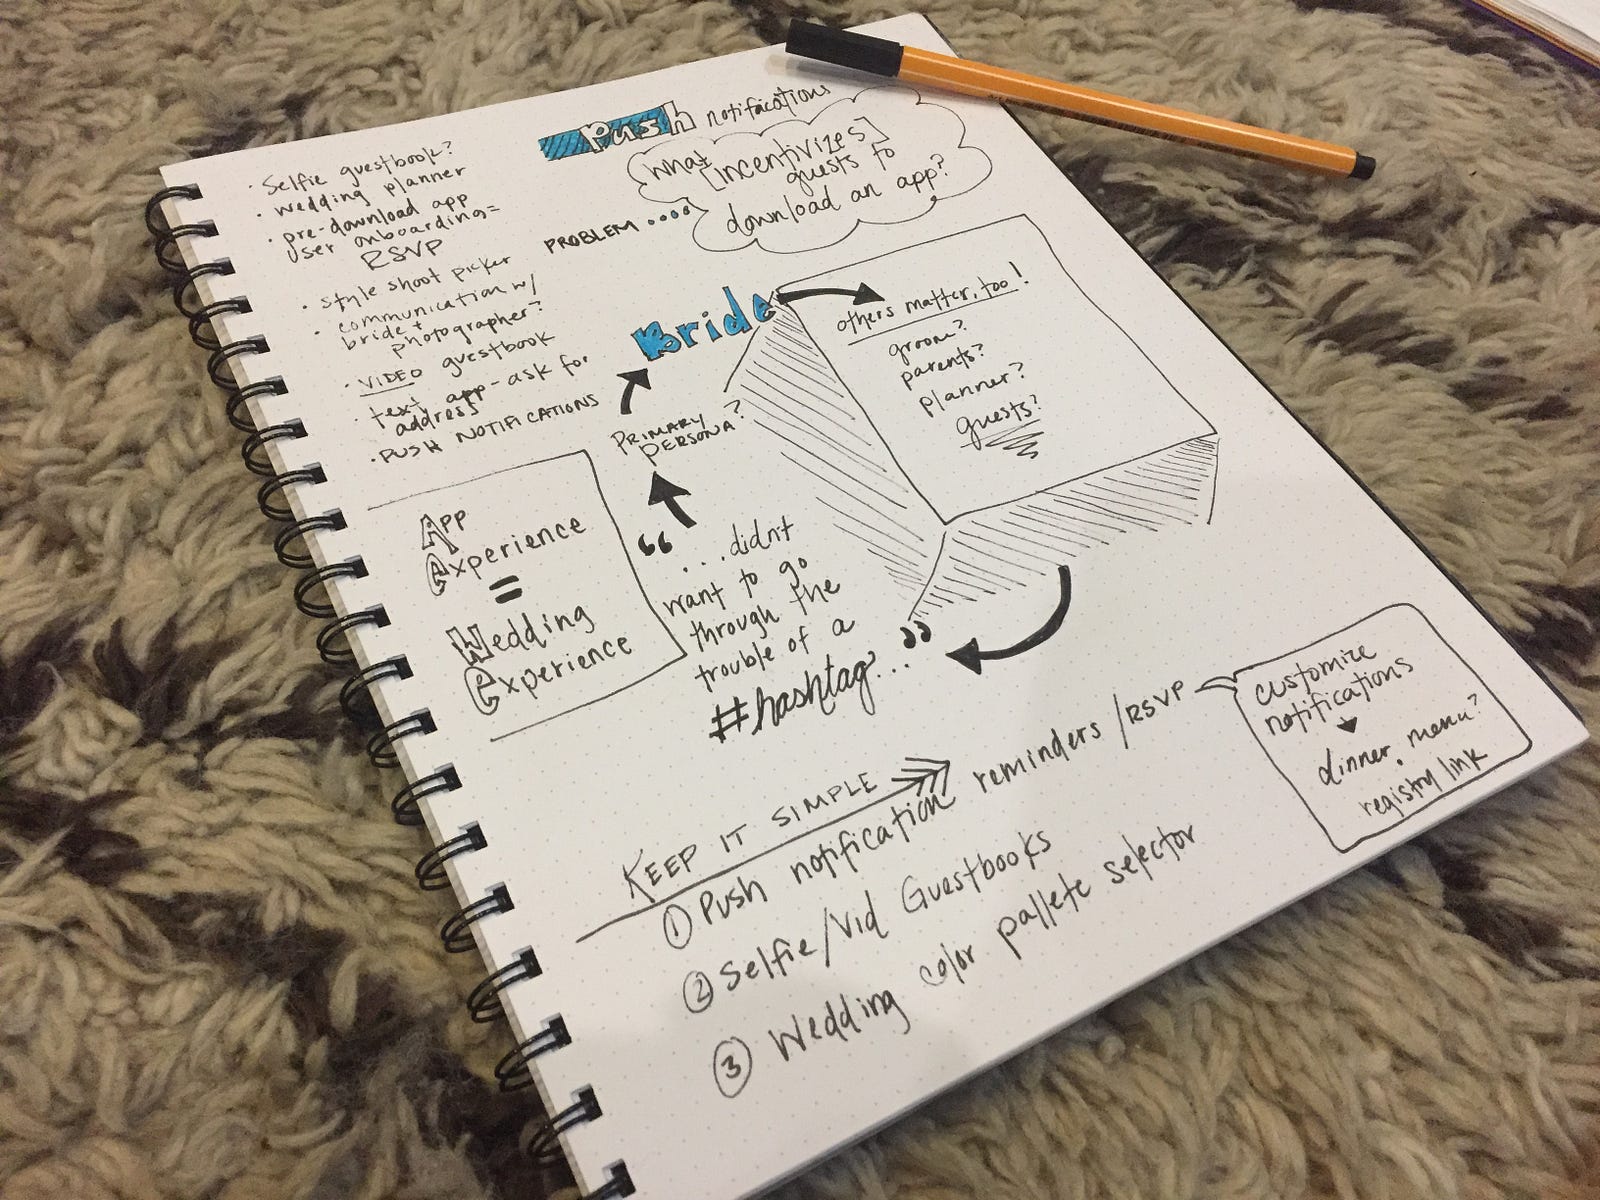 Push notifications
• Selfie guestbook?
• wedding planner
• pre-download app
user onboarding=
RSVP
• style shoot picker
• communication w/
bride +
photographer?
• VIDEO guestbook
• text app - ask for
address
• PUSH NOTIFICATIONS
PROBLEM ....
What [incentivizes]
guests to
download an app?
Bride
others matter, too!
groom?
parents?
planner?
guests?
PRIMARY
PERSONA?
App
Experience
=
Wedding
Experience
“ ...didn't
want to go
through the
trouble of a
#hashtag?... ”
KEEP IT SIMPLE
① Push notification reminders /RSVP
② Selfie/Vid Guestbooks
③ Wedding color pallete selector
customize
notifications
dinner menu?
registry link